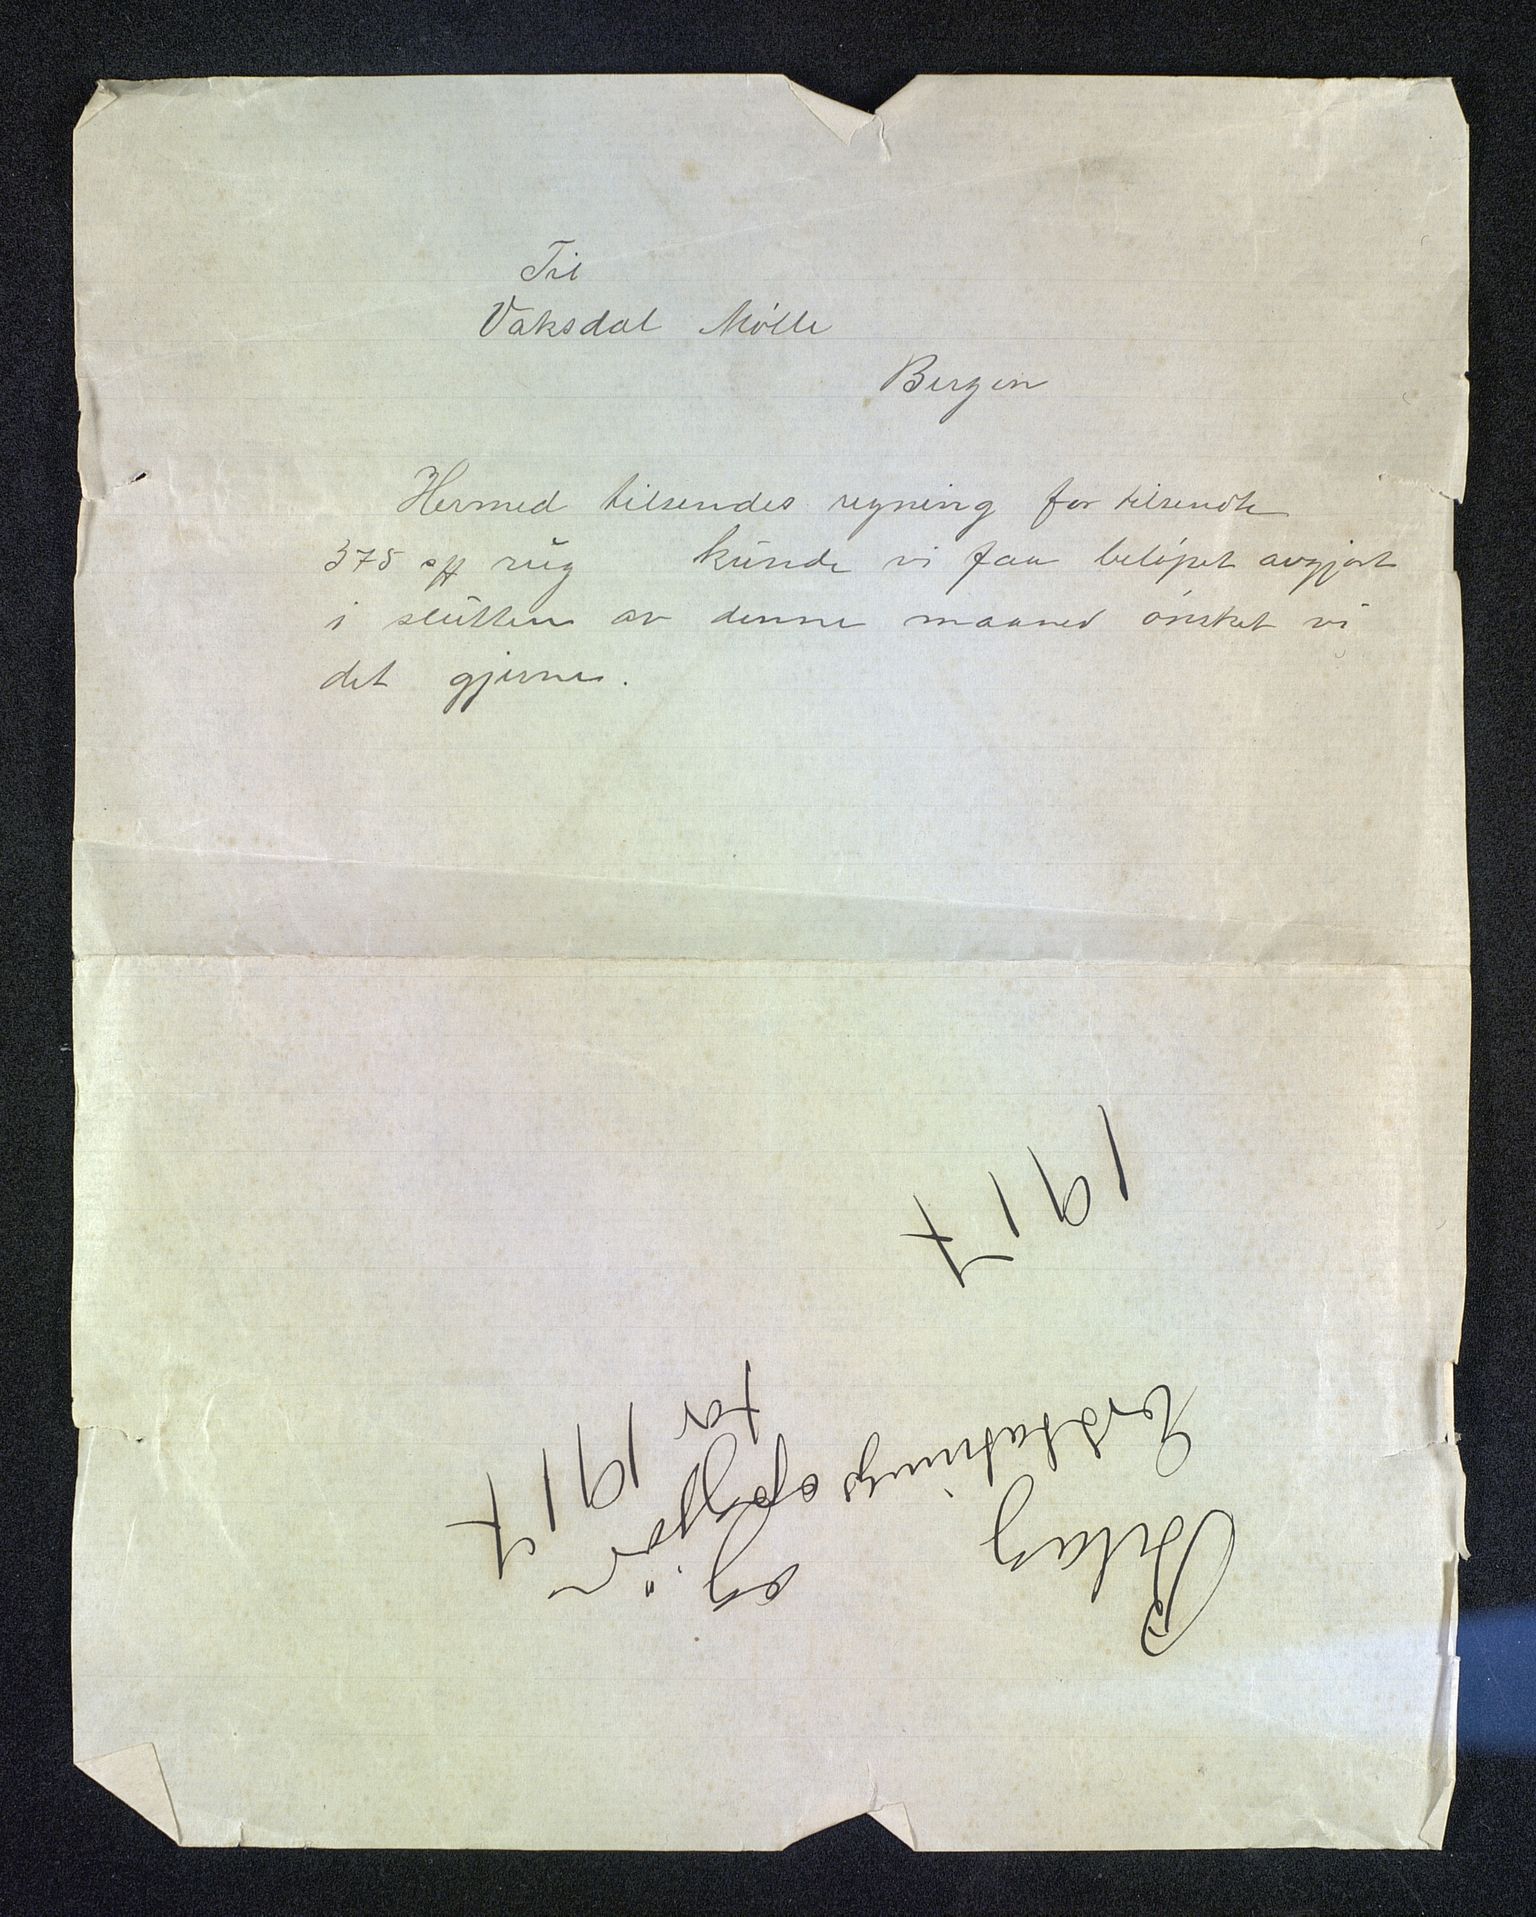 Til
Vaksdal Mølle
Bergen
Hermed tilsendes regning for tilsendte
375 sŧ rug kunde vi faa beløpet avgjort
i slutten av denne maaned ønsket vi
det gjerne.
1917
Bilag
Erstatnings opgjør
for 1917